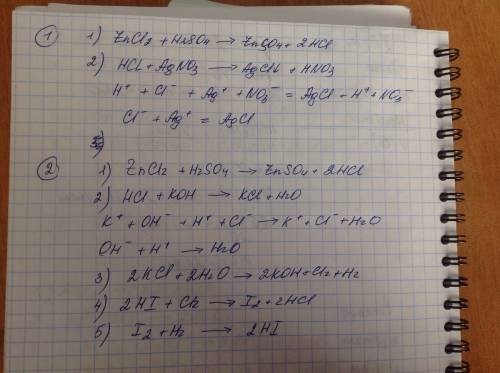 ① 1) ZnCl2 + H2SO4 → ZnSO4 + 2HCl
2) HCl + AgNO3 → AgCl↓ + HNO3
H⁺ + Cl⁻ + Ag⁺ + NO3⁻ = AgCl + H⁺ + NO3⁻
Cl⁻ + Ag⁺ = AgCl
② 1) ZnCl2 + H2SO4 → ZnSO4 + 2HCl
2) HCl + KOH → KCl + H2O
K⁺ + OH⁻ + H⁺ + Cl⁻ → K⁺ + Cl⁻ + H2O
OH⁻ + H⁺ → H2O
3) 2KCl + 2H2O → 2KOH + Cl2 + H2
4) 2HI + Cl2 → I2 + 2HCl
5) I2 + H2 → 2HI